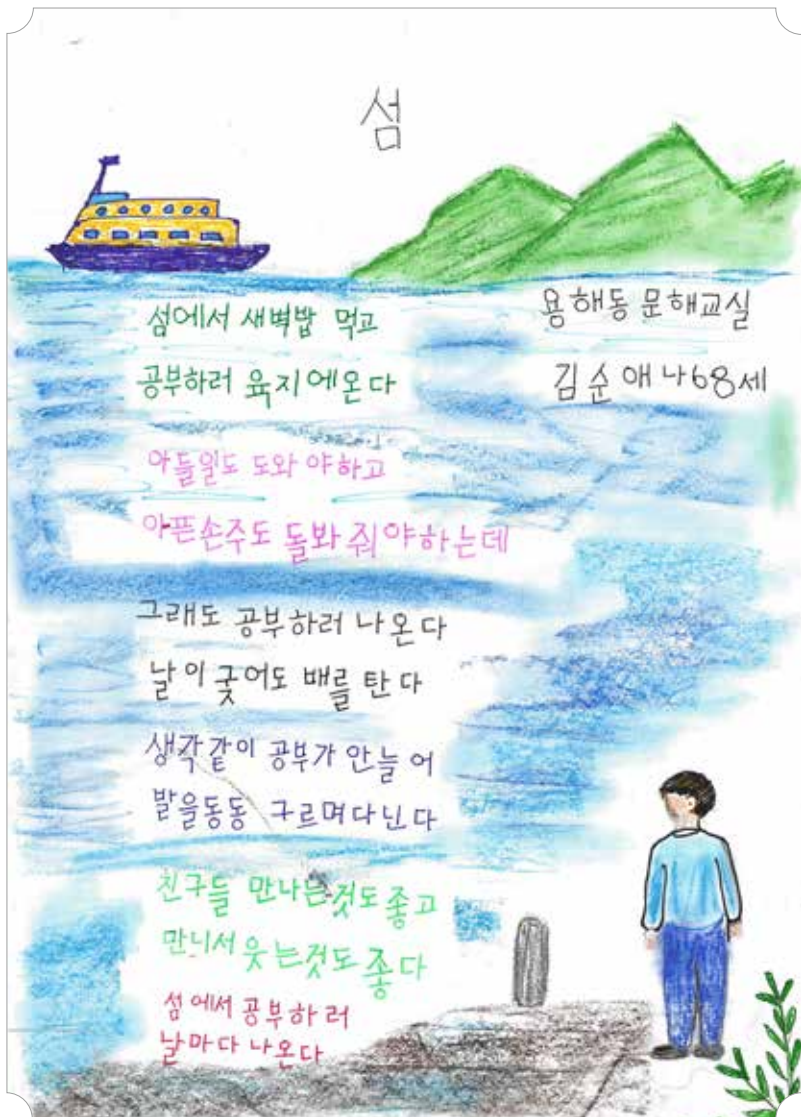 섬
용해동 문해교실
김순애 나68세
섬에서 새벽밥 먹고
공부하러 육지에온다
아들일도 도와 야하고
아픈손주도 돌봐 줘야하는데
그래도 공부하러 나온다
날이 궂어도 배를 탄다
생각같이 공부가 안늘어
발을동동 구르며다닌다
친구들 만나는것도좋고
만니서 웃는것도 좋다
섬에서 공부하러
날마다 나온다